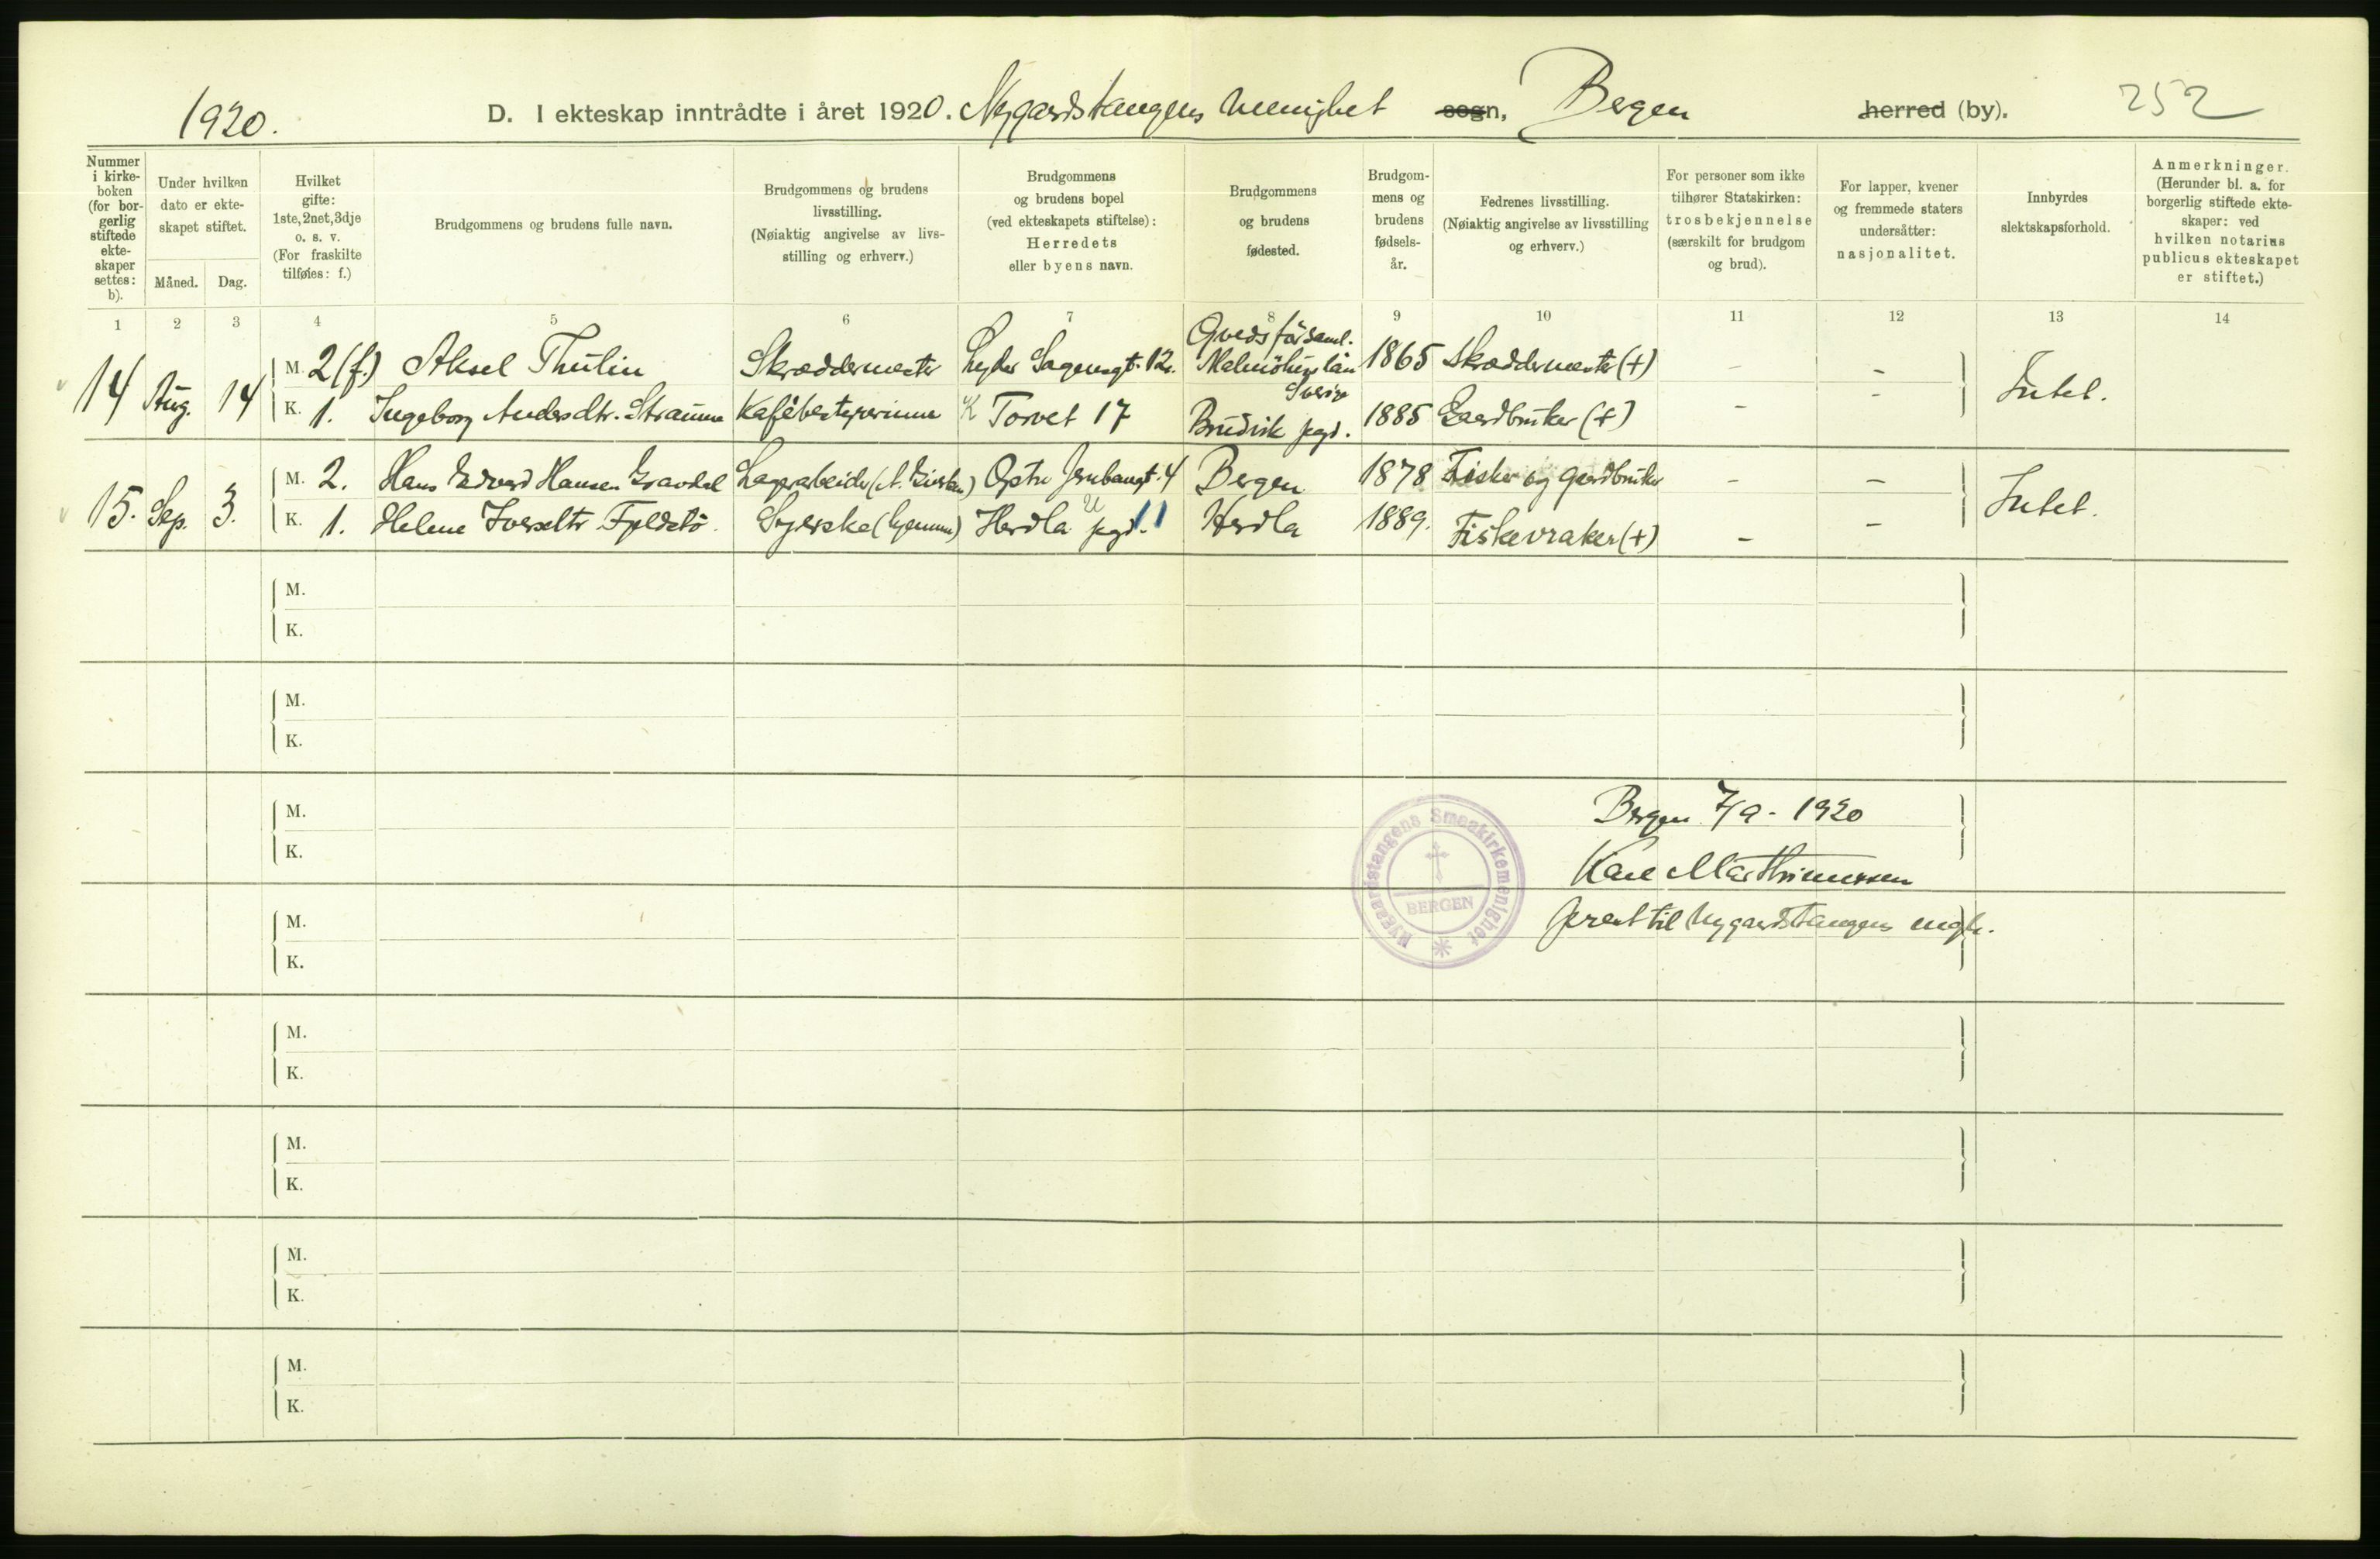 1920.
D. I ekteskap inntrådte i året 1920. Nygaardstangens menighet sogn, Bergen herred (by).
252
Nummer i kirkeboken (for borgerlig stiftede ekteskaper settes: b).
Under hvilken dato er ekteskapet stiftet.
Måned. Dag.
Hvilket gifte: 1ste, 2net, 3dje o. s. v. (For fraskilte tilføies: f.)
Brudgommens og brudens fulle navn.
Brudgommens og brudens livsstilling. (Nøiaktig angivelse av livsstilling og erhverv.)
Brudgommens og brudens bopel (ved ekteskapets stiftelse): Herredets eller byens navn.
Brudgommens og brudens fødested.
Brudgommens og brudens fødselsår.
Fedrenes livsstilling. (Nøiaktig angivelse av livsstilling og erhverv.)
For personer som ikke tilhører Statskirken: trosbekjennelse (særskilt for brudgom og brud).
For lapper, kvener og fremmede staters undersåtter: nasjonalitet.
Innbyrdes slektskapsforhold.
Anmerkninger. (Herunder bl. a. for borgerlig stiftede ekteskaper: ved hvilken notarius publicus ekteskapet er stiftet.)
1 2 3 4 5 6 7 8 9 10 11 12 13 14
14 Aug. 14
M. 2 (f.) Aksel Thulin Skræddermester Lyder Sagensgt. 12. Qvedsförsaml. Malmöhus län Sverige 1865 Skræddermester (+) - -
K. 1. Ingeborg Andersdtr. Straume Kafébestyrerinne K Torvet 17 Bruvik pgd. 1885 Gaardbruker (+) - -
Intet.
15. Sep. 3.
M. 2. Hans Edvard Hansen Gravdal Lagerarbeider Jernbanegt. 4 Bergen 1878 Fisker og gaardbruker - -
K. 1. Helene Iversdtr. Fjeldstö. Syerske (hjemme) Herdla U pgd. 11 Herdla 1889. Fiskevraker (+) - -
Intet.
M.
K.
M.
K.
M.
K.
Bergen 7/9 - 1920
Marthinussen
prest til Nygaardstangens mgh.
Nygaardstangens Smaakirkemenighet
BERGEN
M.
K.
M.
K.
M.
K.
M.
K.
M.
K.